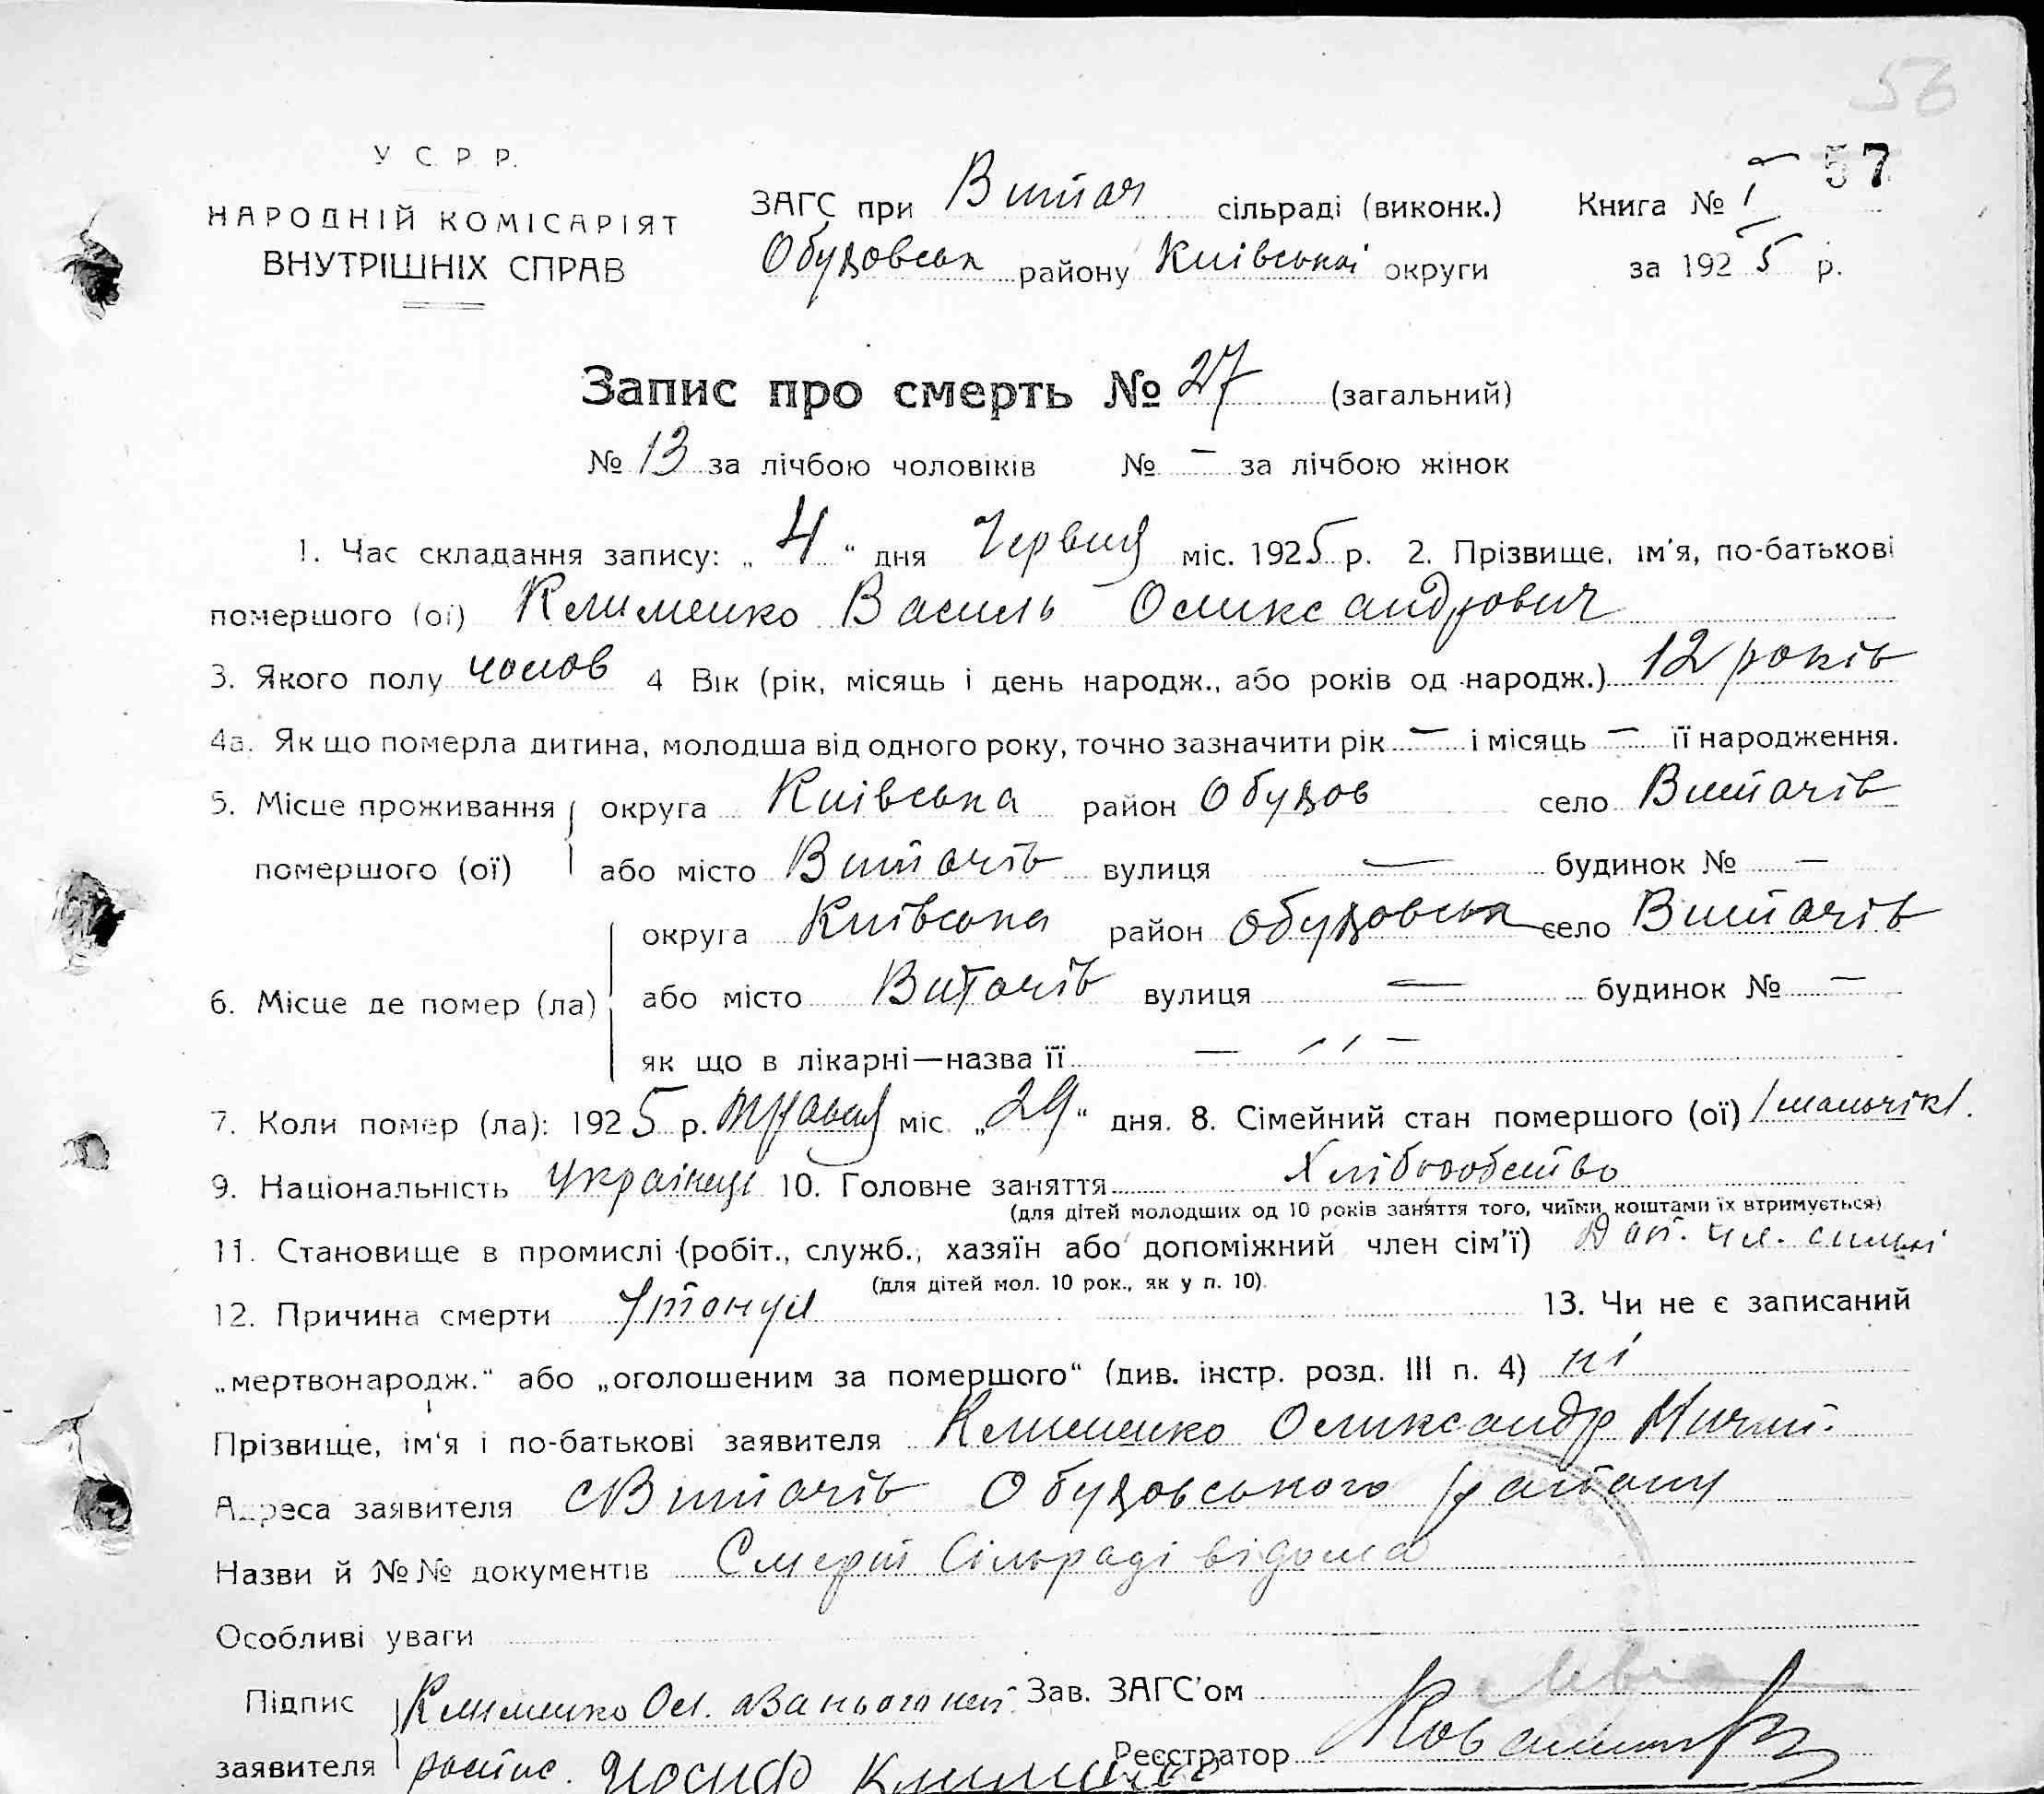 56
57
У С Р Р.
НАРОДНІЙ КОМІСАРІЯТ
ВНУТРІШНІХ СПРАВ
ЗАГС при Витач сільраді (виконк.) Книга № I
Обуховськ району Київської округи за 1925 р.
Запис про смерть № 27 (загальний)
№ 13 за лічбою чоловіків № — за лічбою жінок
1. Час складання запису: „4“ дня Червня міс. 1925 р. 2. Прізвище, ім'я, по-батькові
помершого (ої) Клименко Василь Олександрович
3. Якого полу чолов 4 Вік (рік, місяць і день народж., або років од народж.) 12 років
4а. Як що померла дитина, молодша від одного року, точно зазначити рік — і місяць — її народження.
5. Місце проживання округа Київська район Обухов село Витачів
помершого (ої) або місто Витачів вулиця — будинок № —
округа Київська район Обуховськ село Витачів
6. Місце де помер (ла) або місто Витачів вулиця — будинок № —
як що в лікарні—назва її — // —
7. Коли помер (ла): 1925 р. Травня міс. „29“ дня. 8. Сімейний стан помершого (ої) /мальчік/.
9. Національність Українец 10. Головне заняття Хліборобство
(для дітей молодших од 10 років заняття того, чиїми коштами їх втримується)
11. Становище в промислі (робіт., служб., хазяїн або допоміжний член сім'ї) Доп. чл. симьі
(для дітей мол. 10 рок., як у п. 10).
12. Причина смерти Утонул 13. Чи не є записаний
„мертвонародж.“ або „оголошеним за помершого“ (див. інстр. розд. III п. 4) ні
Прізвище, ім'я і по-батькові заявителя Клименко Олександр
Адреса заявителя с Витачів Обуховського района
Назви й №№ документів Смерть Сільраді відома
Особливі уваги
Підпис Клименко Ол. а за нього неп. Зав. ЗАГС'ом
заявителя роспис. Иосиф Клименко Реєстратор